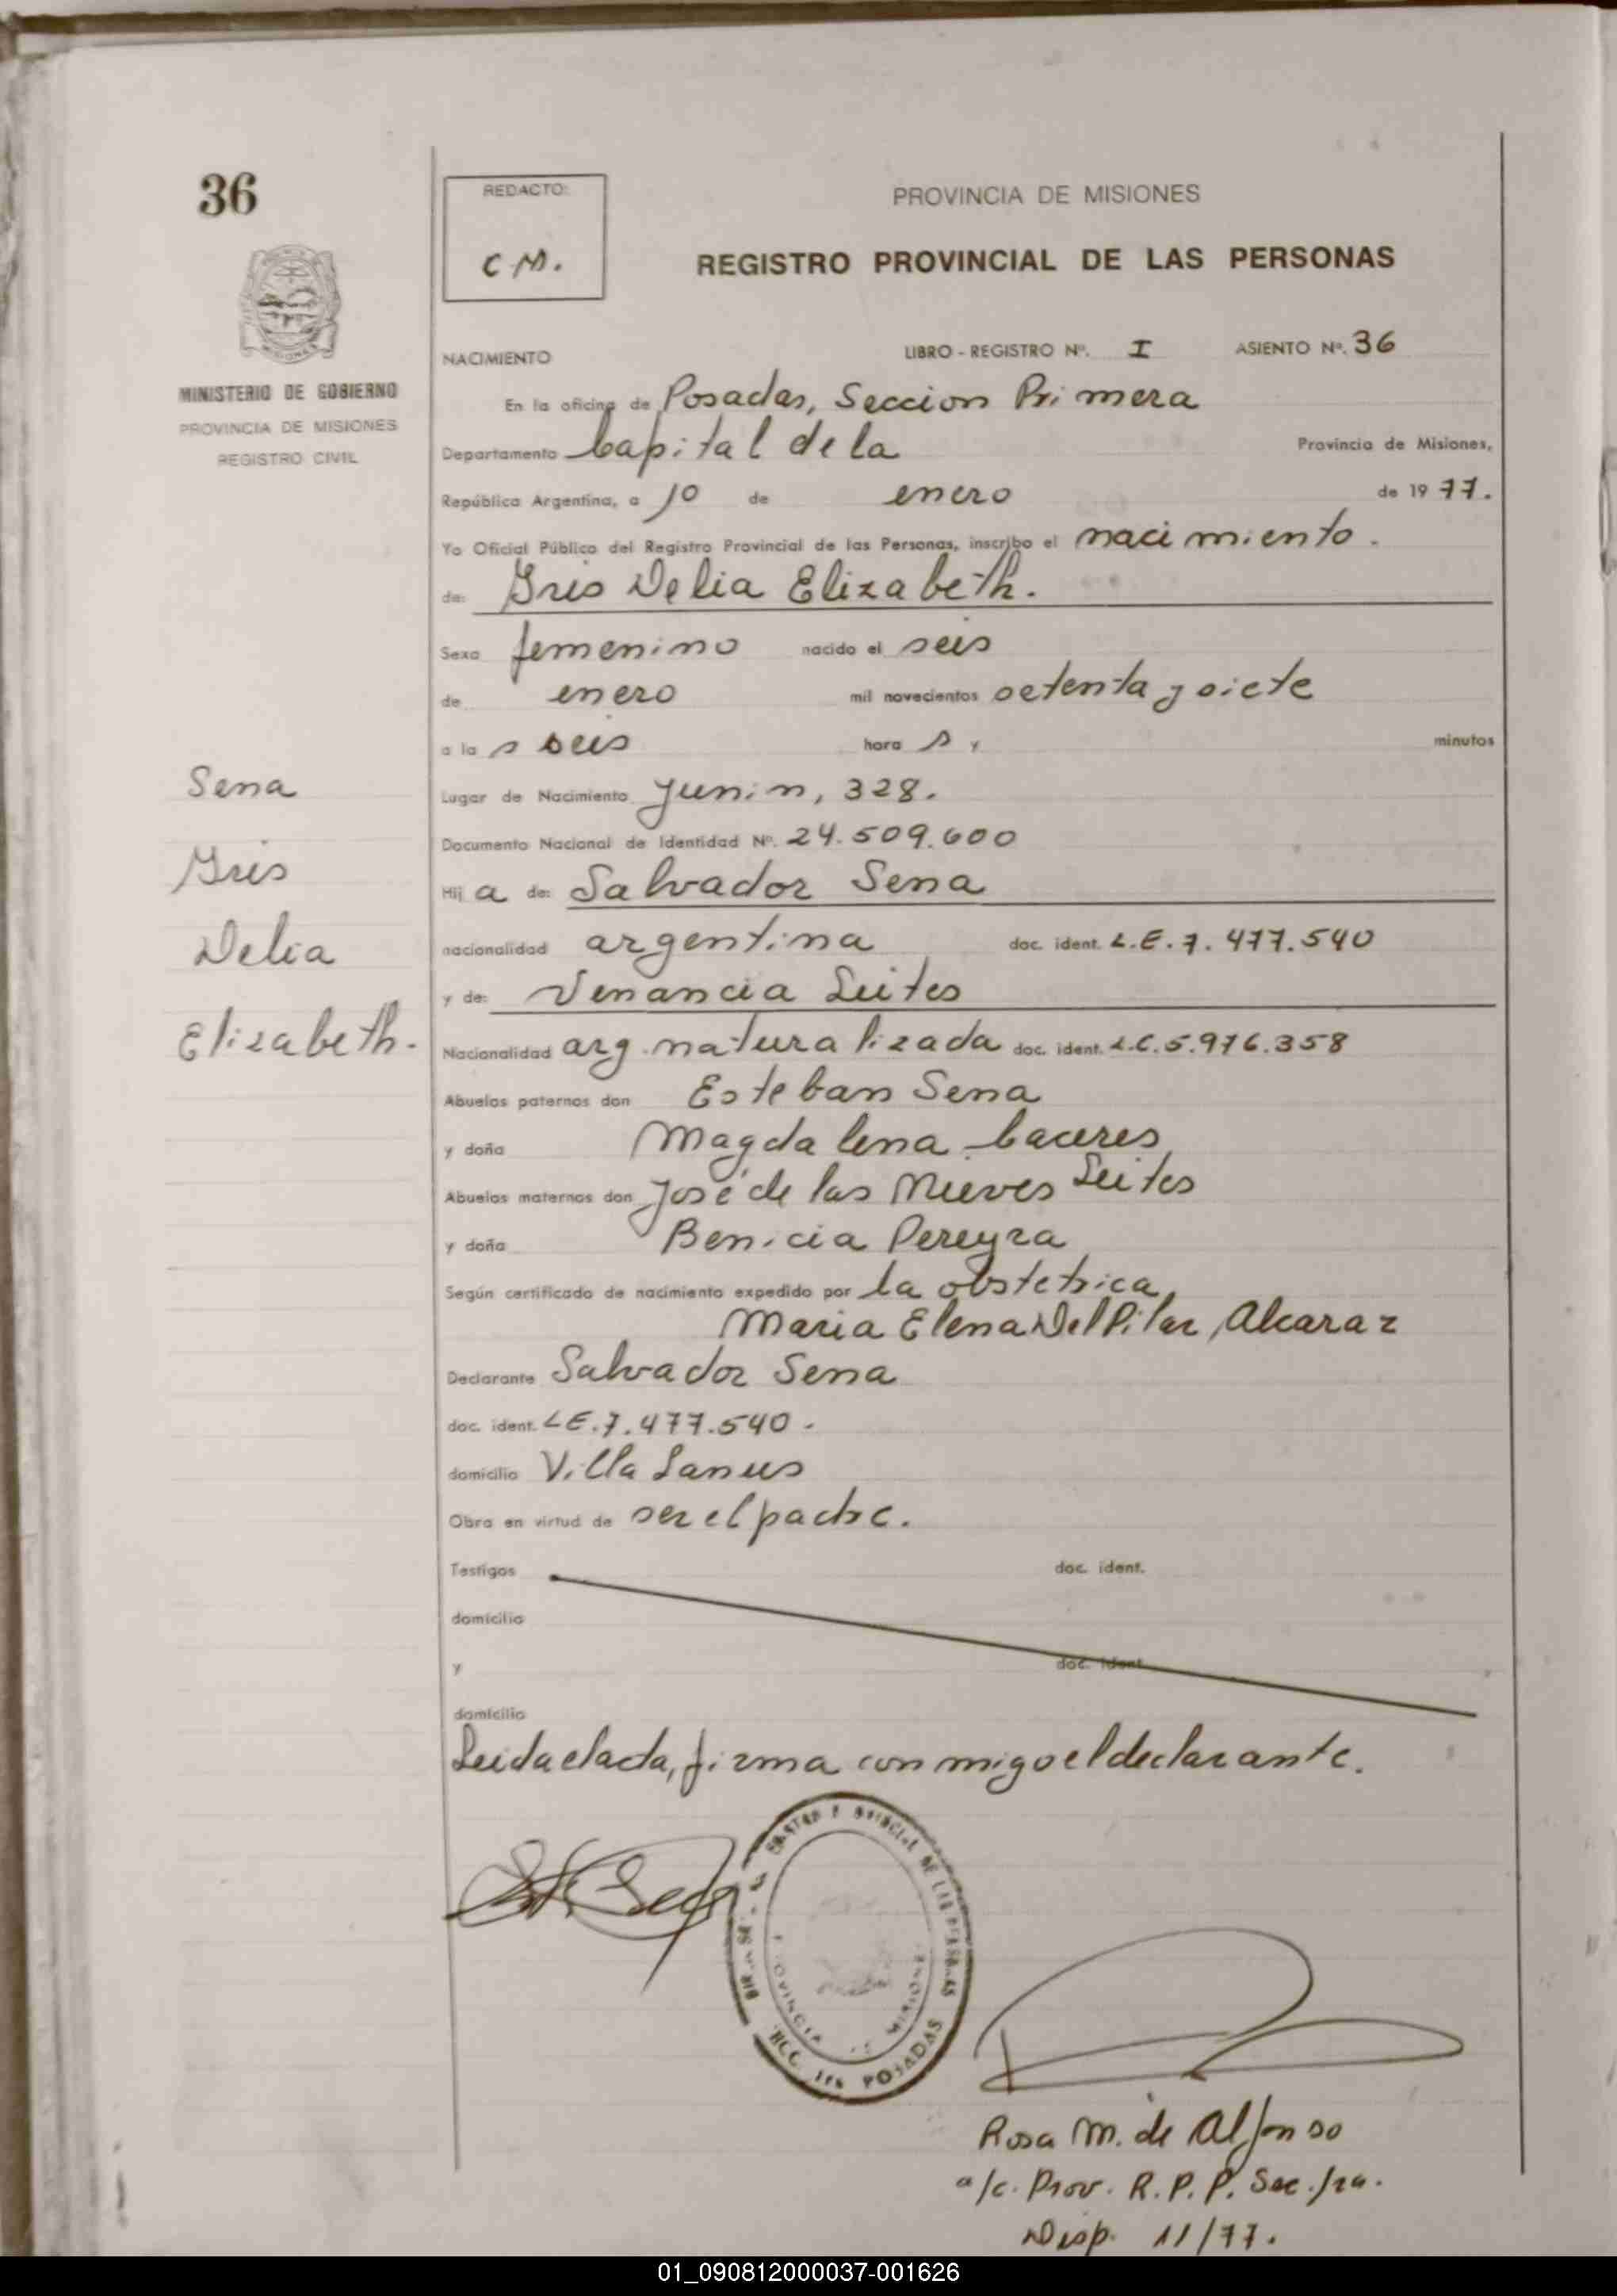 36
REDACTO:
C M.
PROVINCIA DE MISIONES
REGISTRO PROVINCIAL DE LAS PERSONAS
MISIONES
MINISTERIO DE GOBIERNO
PROVINCIA DE MISIONES
REGISTRO CIVIL
NACIMIENTO LIBRO - REGISTRO Nº. I ASIENTO Nº. 36
En la oficina de Posadas, Seccion Primera
Departamento Capital de la Provincia de Misiones,
República Argentina, a 10 de enero de 1977.
Yo Oficial Público del Registro Provincial de las Personas, inscribo el nacimiento.
de: Iris Delia Elizabeth.
Sexo femenino nacido el seis
de enero mil novecientos setenta y siete
a la s seis hora s y minutos
Lugar de Nacimiento Junin, 328.
Documento Nacional de Identidad Nº. 24.509.600
Hij a de: Salvador Sena
nacionalidad argentina doc. ident. L.E. 7.477.540
y de: Venancia Leites
Nacionalidad arg. naturalizada doc. ident. L.C. 5.976.358
Abuelos paternos don Esteban Sena
y doña Magdalena Caceres
Abuelos maternos don José de las Nieves Leites
y doña Benicia Pereyra
Según certificado de nacimiento expedido por la obstetrica
Maria Elena Del Pilar, Alcaraz
Declarante Salvador Sena
doc. ident. LE. 7.477.540.
domicilio Villa Lanus
Obra en virtud de ser el padre.
Testigos doc. ident.
domicilio
y doc. ident.
domicilio
Leida el acta, firma conmigo el declarante.
Sena
Iris
Delia
Elizabeth.
DE LAS PERSONAS
PROVINCIA MISIONES
POSADAS
Rosa M. de Alfonso
a/c. Prov. R.P.P. Sec. 1ra.
Disp. 11/77.
01_090812000037-001626